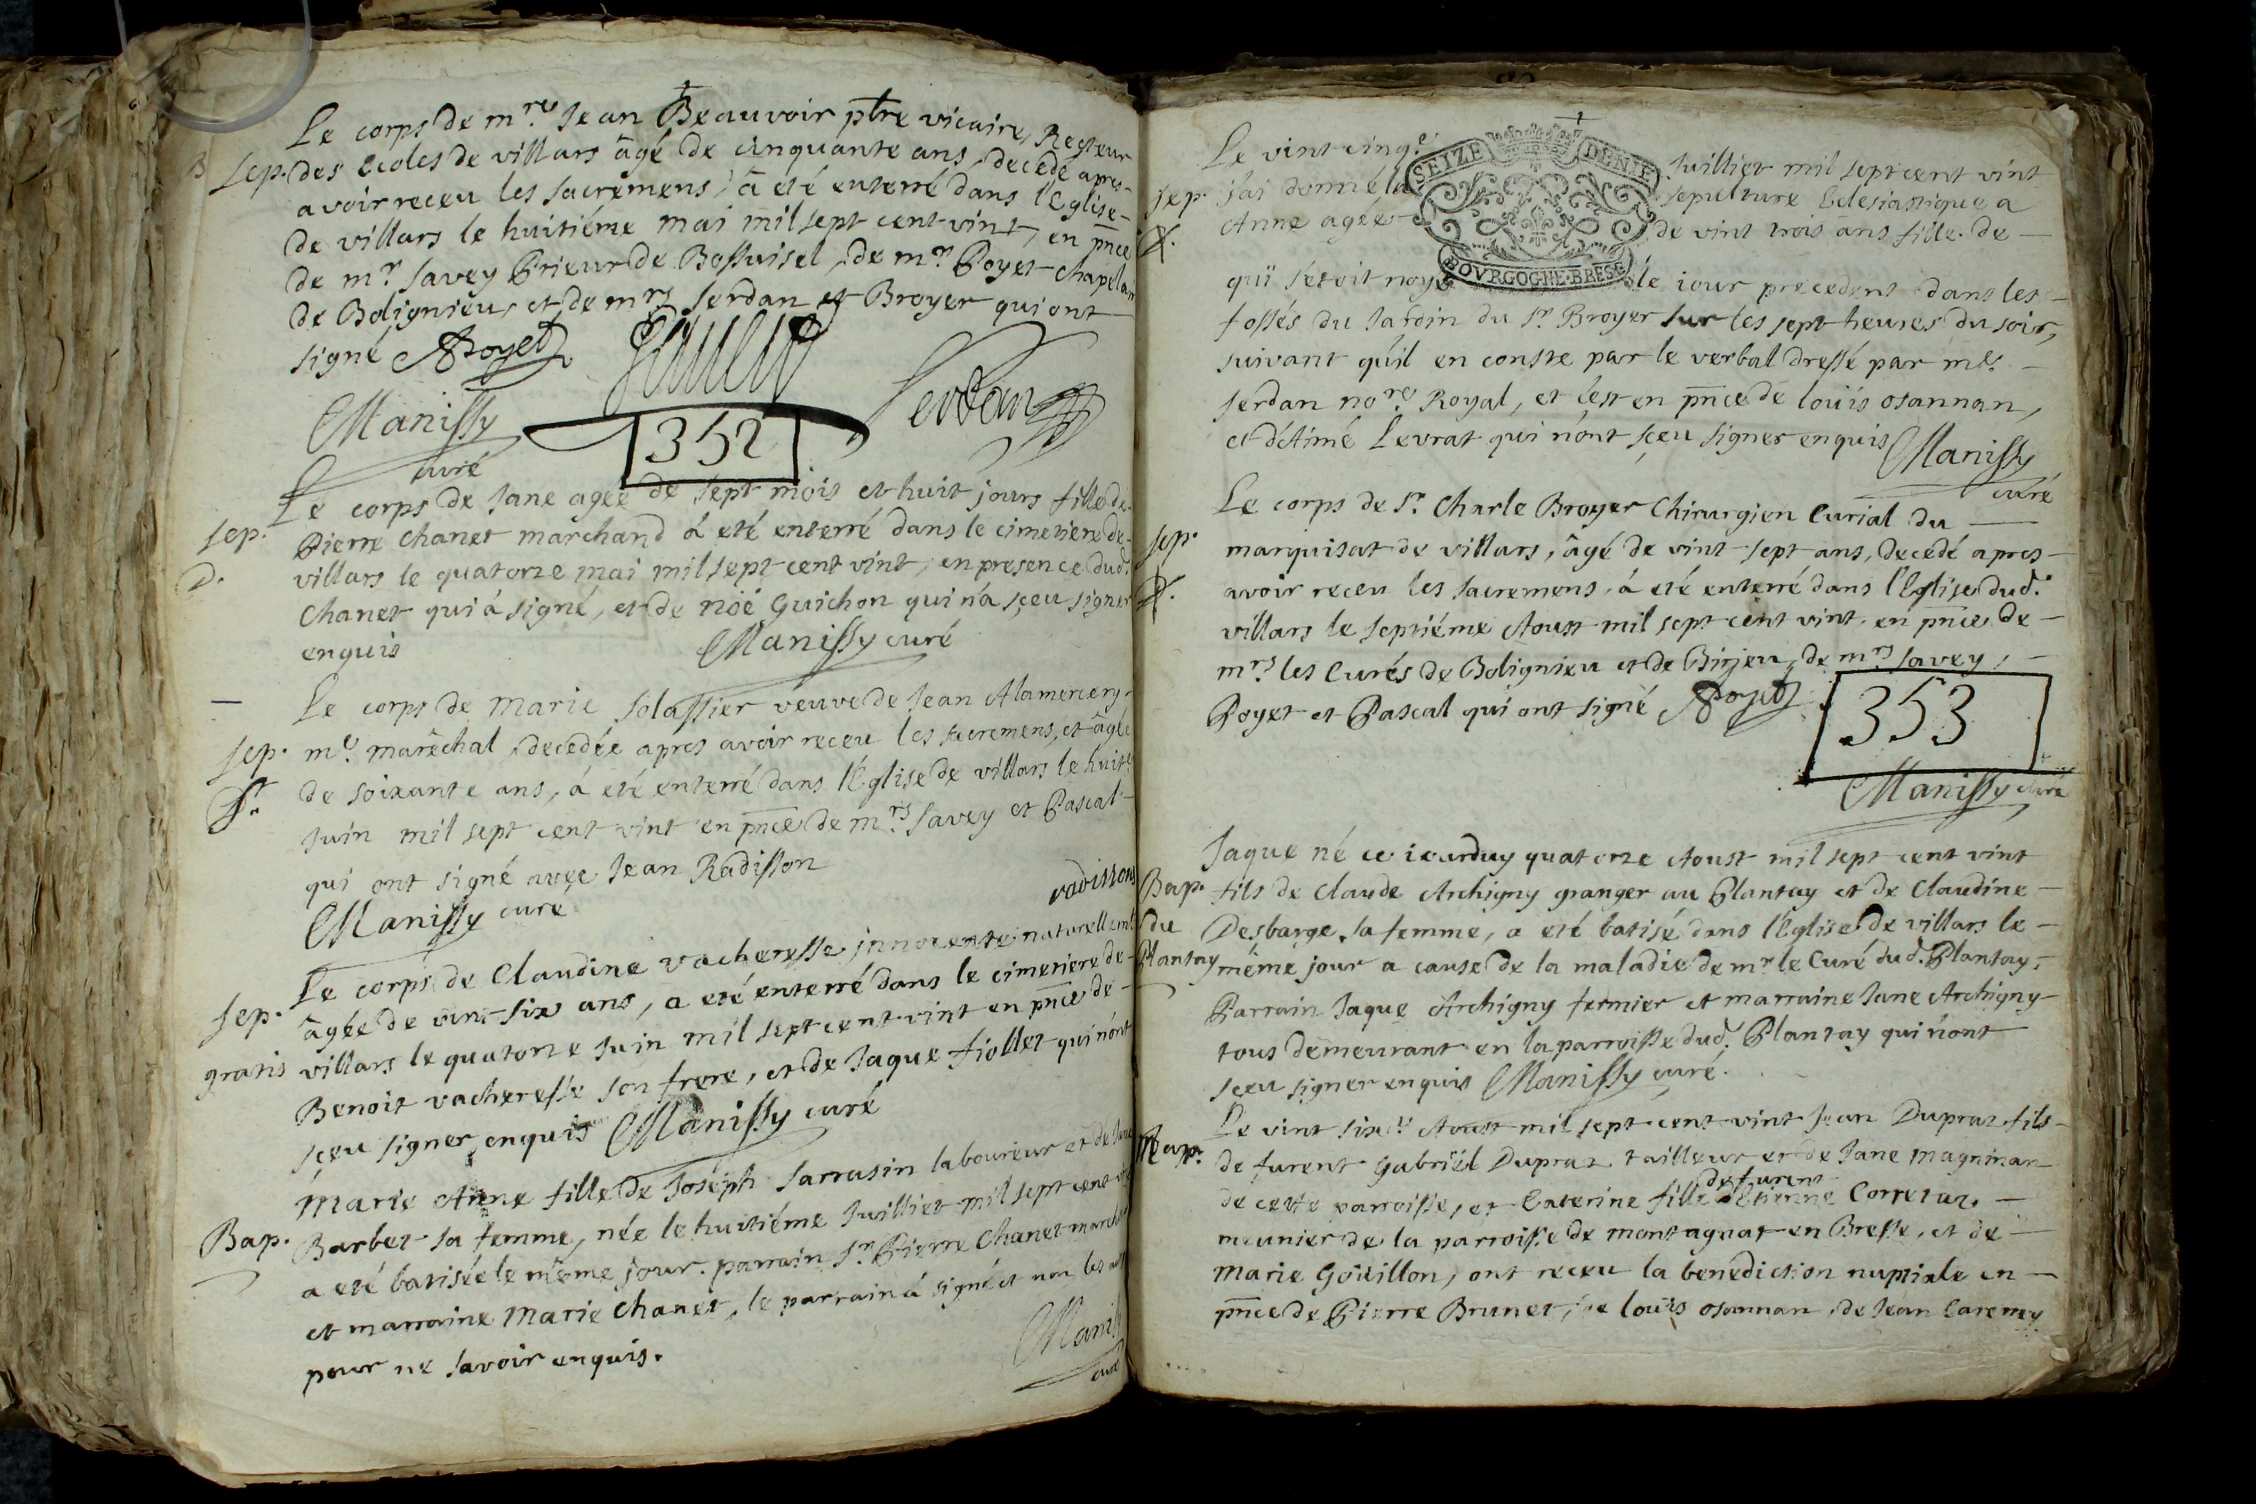 Le corps de m.re Jean Beauvoir ptre vicaire, Recteur
B Sep. des Ecoles de villars âgé de cinquante ans, decedé apres
avoir receu les sacremens, â été enterré dans l'Eglise
de villars le huitiéme mai mil sept cent vint, en pnce
de mr. Savey Prieur de Bossuisel, de mr. Poyet chapelan
de Bolignieu, et de mrs. Serdan et Broyer qui ont
signé Poyet
Manissy Serdan
352
curé
Le corps de Jane agée de sept mois et huit jours fille de
Sep. Pierre Chanet marchand á eté enterré dans le cimetiere de
D. villars le quatorze mai mil sept cent vint, en presence dud.
Chanet qui á signé, et de noë Guichon qui n'á sçeu signer
enquis Manissy curé
Le corps de Marie Solassier veuve de Jean Alamercery
Sep. me. maréchal, decedée apres avoir receu les sacremens, et âgée
de soixante ans, á eté enterré dans l'Eglise de villars le huit.e
Juin mil sept cent vint en pnce de mrs. Savey et Pascal
qui ont signé avec Jean Radisson
radisson
Manissy curé
Le corps de Claudine vacheresse innocente naturellemt
Sep. âgée de vint-six ans, a eté enterré dans le cimetiere de
gratis villars le quatorze Juin mil sept cent vint en pnce de
Benoit vacheresse son frere, et de Jaque fiollet qui n'ont
sçeu signer enquis Manissy curé
Marie Anne fille de Joséph Sarrasin laboureur et de Jane
Bap. Barbet sa femme, née le huitiéme Juilliet mil sept cent
a eté batisée le même jour. parrain Sr. Pierre Chanet march
et marraine Marie Chanet, le parrain á signé et non les
pour ne savoir enquis.
Maniss
curé
Le vint cinq.e Juilliet mil sept cent vint
SEIZE DENIE
Sep. j'ai donné la sepulture Eclesiastique a
Anne agée de vint trois ans fille de
BOVRGOGNE·BRESSE
qui s'etoit noyé le iour precedent dans les
fossés du Jardin du Sr. Broyer sur les sept heures du soir,
suivant qu'il en conste par le verbal dressé par me.
Serdan nore. Royal, et c'est en pnce de loüis osannan,
et d'Aimé Levrat qui n'ont sçeu signer enquis Manissy
curé
Le corps de Sr. Charle Broyer Chirurgien Curial du
Sep. marquisat de villars, âgé de vint-sept ans, decedé apres
avoir receu les sacremens, á eté enterré dans l'Eglise dud.
villars le septiéme Aoust mil sept cent vint, en pnce de
mrs. les Curés de Bolignieu et de Birjeu, de mrs Savey,
Poyet et Pascal qui ont signé Poyet
353
Manissy curé
Jaque né ce iourduy quatorze Aoust mil sept cent vint
Bap. fils de Claude Archigny granger au Plantay et de Claudine
du Desbarge sa femme, a eté batisé dans l'Eglise de villars le
Plantay même jour a cause de la maladie de mr. le Curé dud. Plantay,
Parrain Jaque Archigny fermier et marraine Jane Archigny
tous demeurant en la parroisse dud. Plantay qui n'ont
sçeu signer enquis Manissy curé.
Le vint sixe. Aoust mil sept cent vint Jean Dupraz fils
Mar. de furent Gabriël Dupraz tailleur et de Jane Magninan
de furent
de cette parroisse, et Caterine fille d'Etienne Corretaz
meunier de la parroisse de montagnat en Bresse, et de
Marie Goüillon, ont receu la benediction nuptiale en
pnce de Pierre Brunet, de loüis osannan, de Jean Caremy